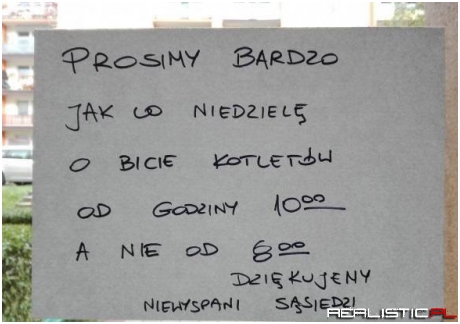 PROSIMY BARDZO
JAK CO NIEDZIELĘ
O BICIE KOTLETÓW
OD GODZINY 10⁰⁰
A NIE OD 8⁰⁰
DZIĘKUJEMY
NIEWYSPANI SĄSIEDZI
REALISTIC.PL